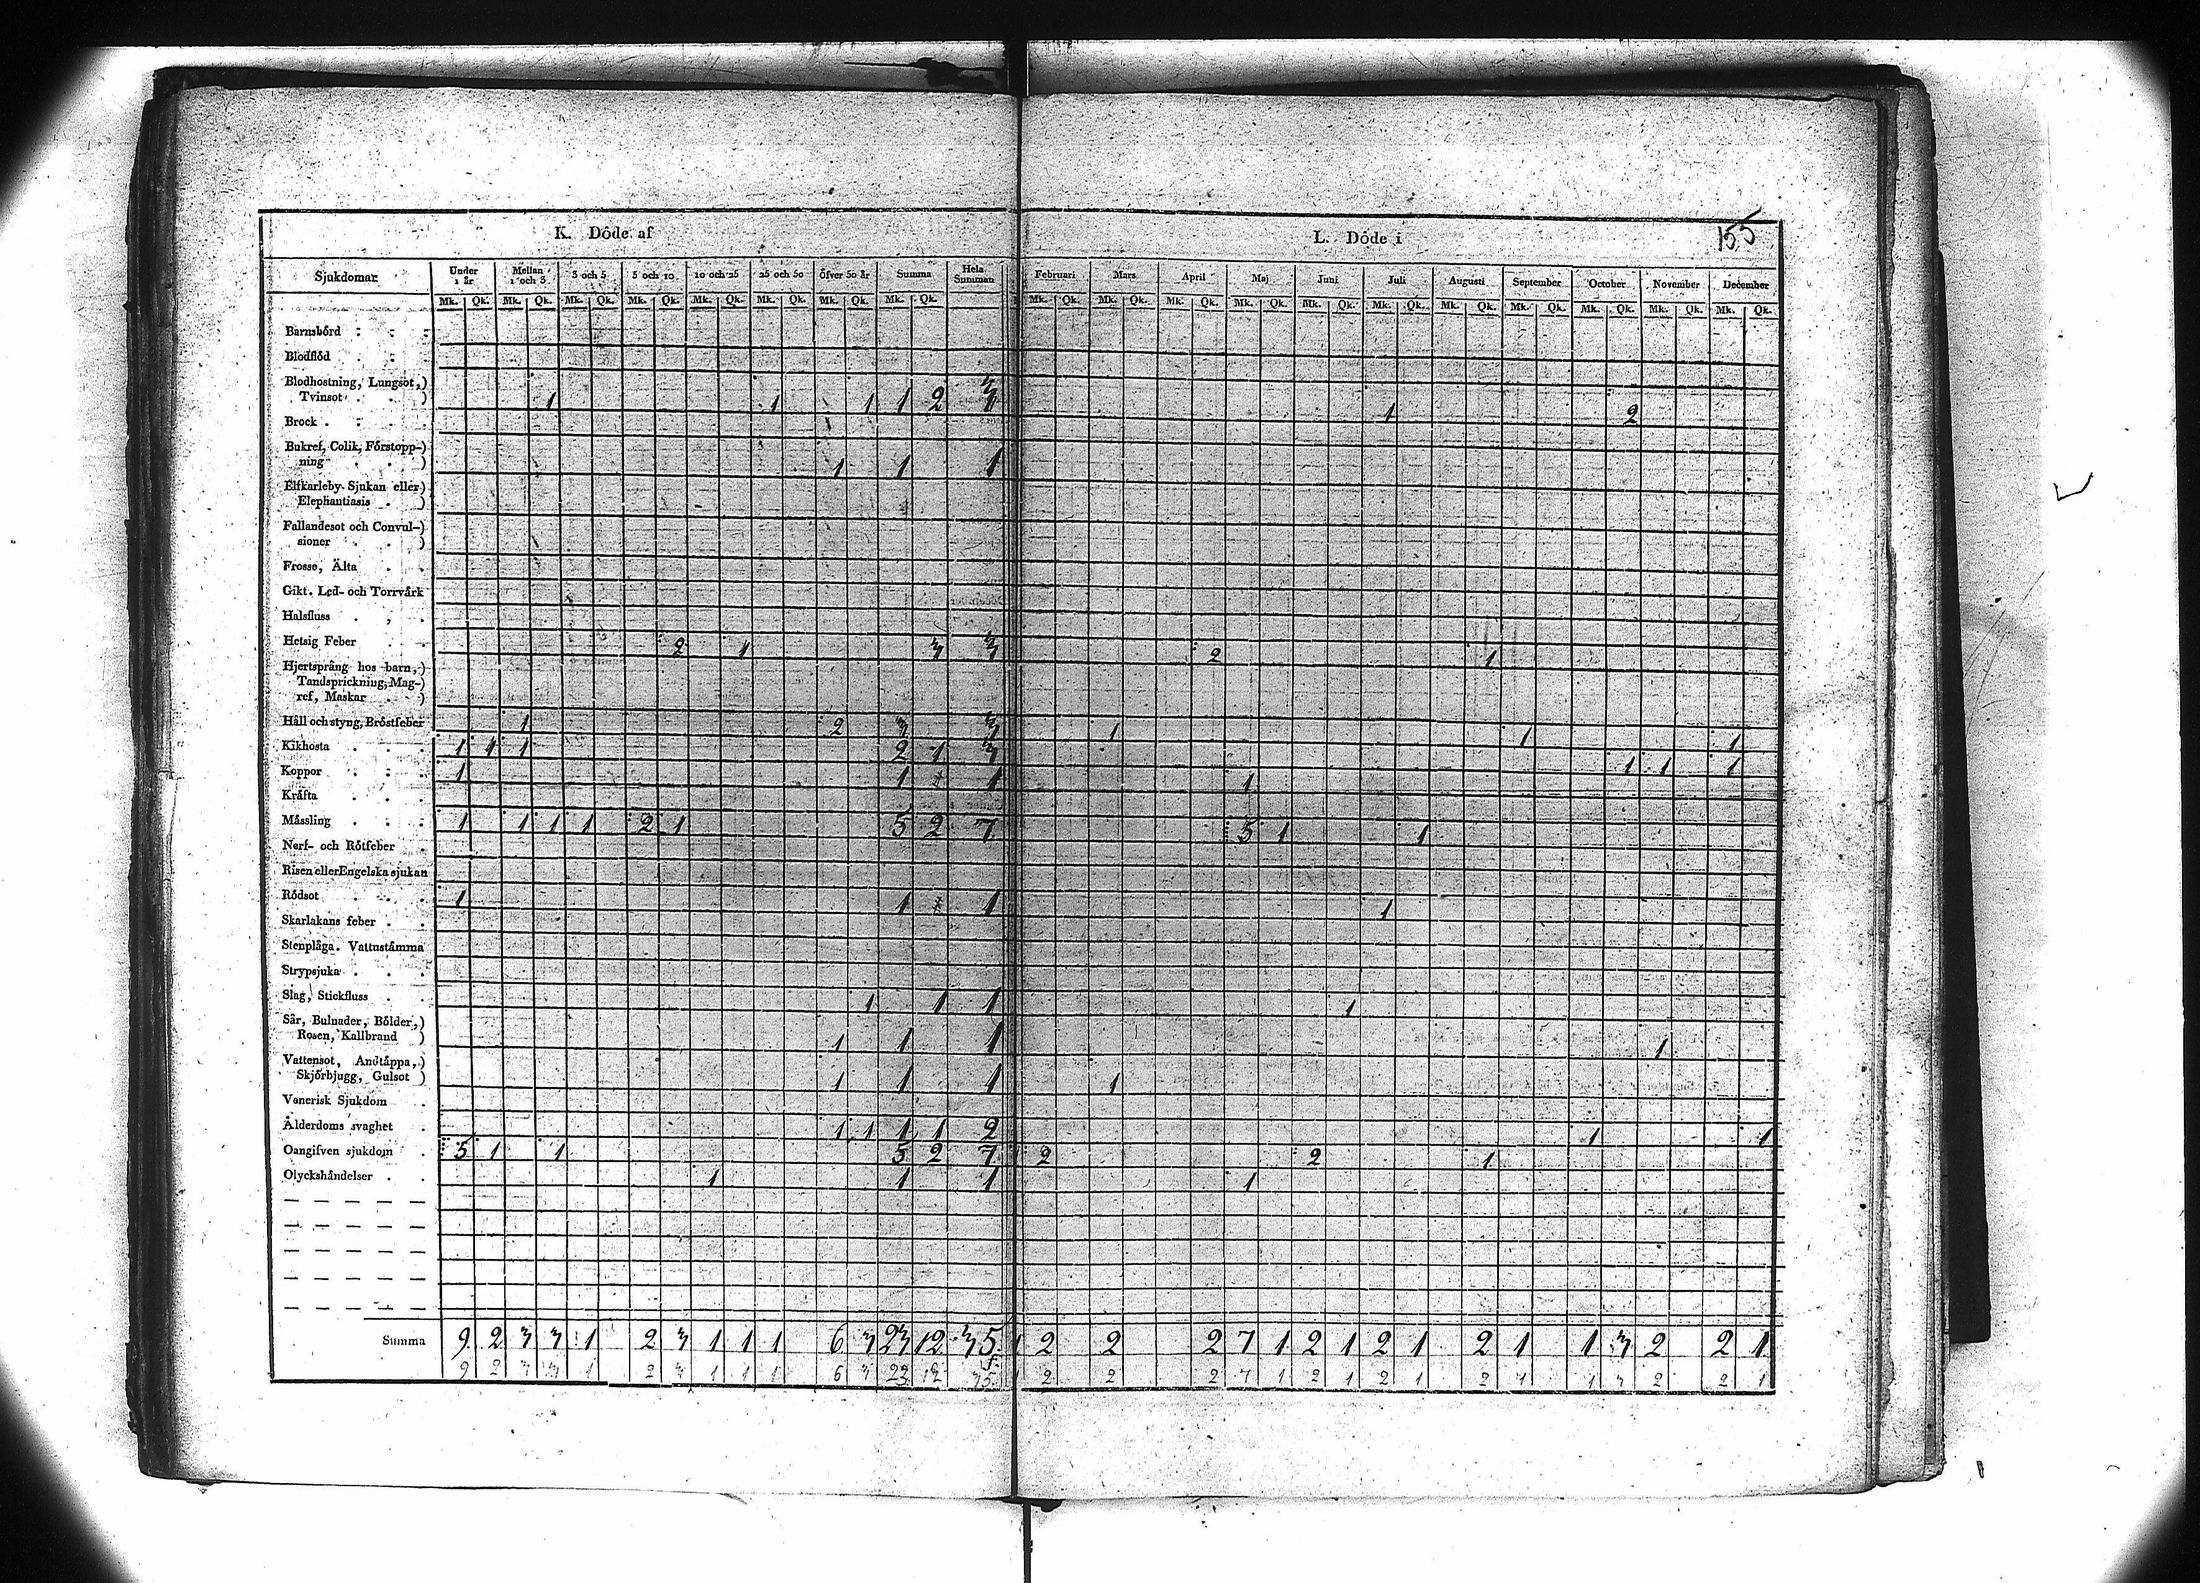 K. Döde af L. Döde i 155
Sjukdomar Under 1 år Mellan 1 och 3 3 och 5 5 och 10 10 och 25 25 och 50 Öfver 50 år Summa Hela Summan Februari Mars April Maj Juni Juli Augusti September October November December
Mk. Qk. Mk. Qk. Mk. Qk. Mk. Qk. Mk. Qk. Mk. Qk. Mk. Qk. Mk. Qk. Mk. Qk. Mk. Qk. Mk. Qk. Mk. Qk. Mk. Qk. Mk. Qk. Mk. Qk. Mk. Qk. Mk. Qk. Mk. Qk. Mk. Qk.
Barnsbörd
Blodflöd
Blodhostning, Lungsot,)
Tvinsot . . ) 1 1 1 1 2 3 1 2
Brock .
Bukref, Colik, Förstopp-)
ning . . ) 1 1 1
Elfkarleby Sjukan eller)
Elephantiasis . )
Fallandesot och Convul-)
sioner . . )
Frossa, Älta
Gikt. Led- och Torrvärk
Halsfluss
Hetsig Feber 2 1 3 3 2 1
Hjertsprång hos barn,)
Tandsprickning, Mag-)
ref, Maskar . )
Håll och styng, Bröstfeber 1 2 3 3 1 1 1
Kikhosta 1 1 1 2 1 3 1 1 1
Koppor 1 1 1 1
Kräfta
Mässling 1 1 1 1 2 1 5 2 7 5 1 1
Nerf- och Rötfeber
Risen eller Engelska sjukan
Rödsot 1 1 1 1
Skarlakans feber
Stenplåga. Vattustämma
Strypsjuka
Slag, Stickfluss 1 1 1 1
Sår, Bulnader, Bölder,)
Rosen, Kallbrand ) 1 1 1 1
Vattensot, Andtäppa,)
Skjörbjugg, Gulsot ) 1 1 1 1
Venerisk Sjukdom
Ålderdoms svaghet 1 1 1 1 2 1 1
Oangifven sjukdom 5 1 1 5 2 7 2 2 1
Olyckshändelser 1 1 1 1
Summa 9 2 3 3 1 2 3 1 1 1 6 3 23 12 35 2 2 2 7 1 2 1 2 1 2 1 1 3 2 2 1
9 2 3 3 1 2 3 1 1 1 6 3 23 12 35 2 2 2 7 1 2 1 2 1 2 1 1 3 2 2 1